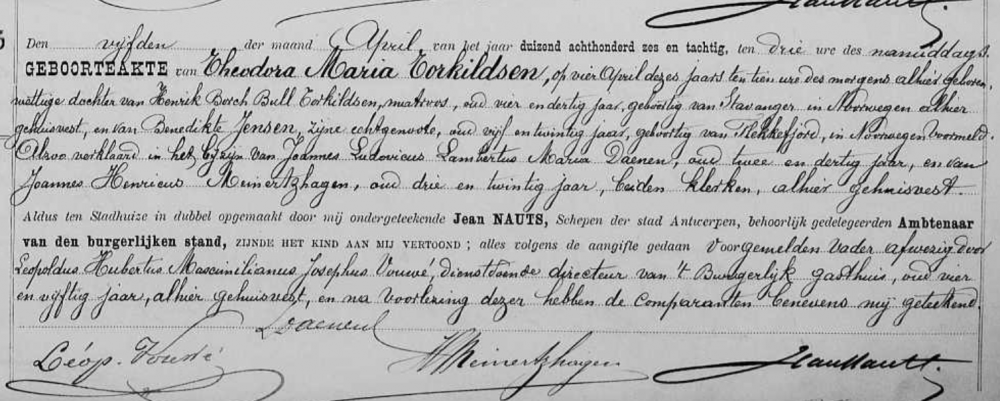 Den vijfden der maand April van het jaar duizend achthonderd zes en tachtig, ten drie ure des namiddags.
GEBOORTEAKTE van Theodora Maria Torkildsen, op vier April dezes jaars ten tien ure des morgens alhier geboren,
wettige dochter van Henrik Borch Bull Torkildsen, matroos, oud vier en dertig jaar, geboortig van Stavanger in Noorwegen alhier
gehuisvest, en van Benedikte Jensen, zijne echtgenoote, oud vijf en twintig jaar, geboortig van Flekkefjord, in Noorwegen voormeld.
Alzoo verklaard in het bijzijn van Joannes Ludovicus Lambertus Maria Daenen, oud twee en dertig jaar, en van
Joannes Henricus Meinertzhagen, oud drie en twintig jaar, beiden klerken, alhier gehuisvest.
Aldus ten Stadhuize in dubbel opgemaakt door mij ondergeteekende Jean NAUTS, Schepen der stad Antwerpen, behoorlijk gedelegeerden Ambtenaar
van den burgerlijken stand, ZIJNDE HET KIND AAN MIJ VERTOOND; alles volgens de aangifte gedaan voorgemelden vader afwezig door
Leopoldus Hubertus Maximilianus Josephus Vouwé, dienstdoende directeur van 't Burgerlijk gasthuis, oud vier
en vijftig jaar, alhier gehuisvest, en na voorlezing dezer hebben de comparanten benevens mij geteekend.
Daenen
Léop. Vouwé HMeinertzhagen JeanNauts